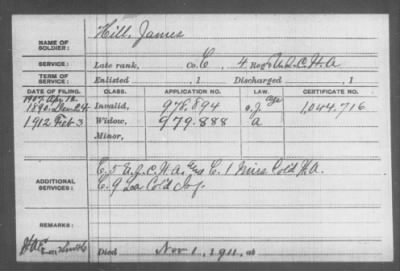 NAME OF SOLDIER: Hill, James
SERVICE: Late rank, Co. C, 4 Reg't U.S.C.H.A.
TERM OF SERVICE: Enlisted , 1 Discharged , 1
DATE OF FILING. CLASS. APPLICATION NO. LAW. CERTIFICATE NO.
1907 Apr. 12 Age
1890. Dec. 24 Invalid, 978.894 o.J. 1,044,716
1912 Feb 3 Widow, 979.888 a
Minor,
ADDITIONAL SERVICES: C. 5 U.S.C.H.A. and C. 1 Miss Cold H.A.
C. 9 La Cold Inf.
REMARKS:
Died Nov 1, 1911, at